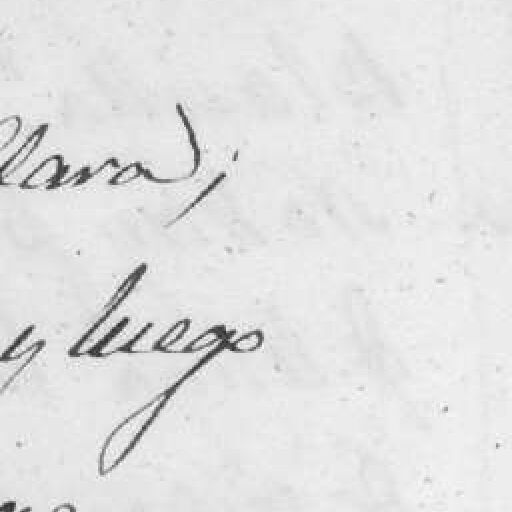 Clara);
y luego